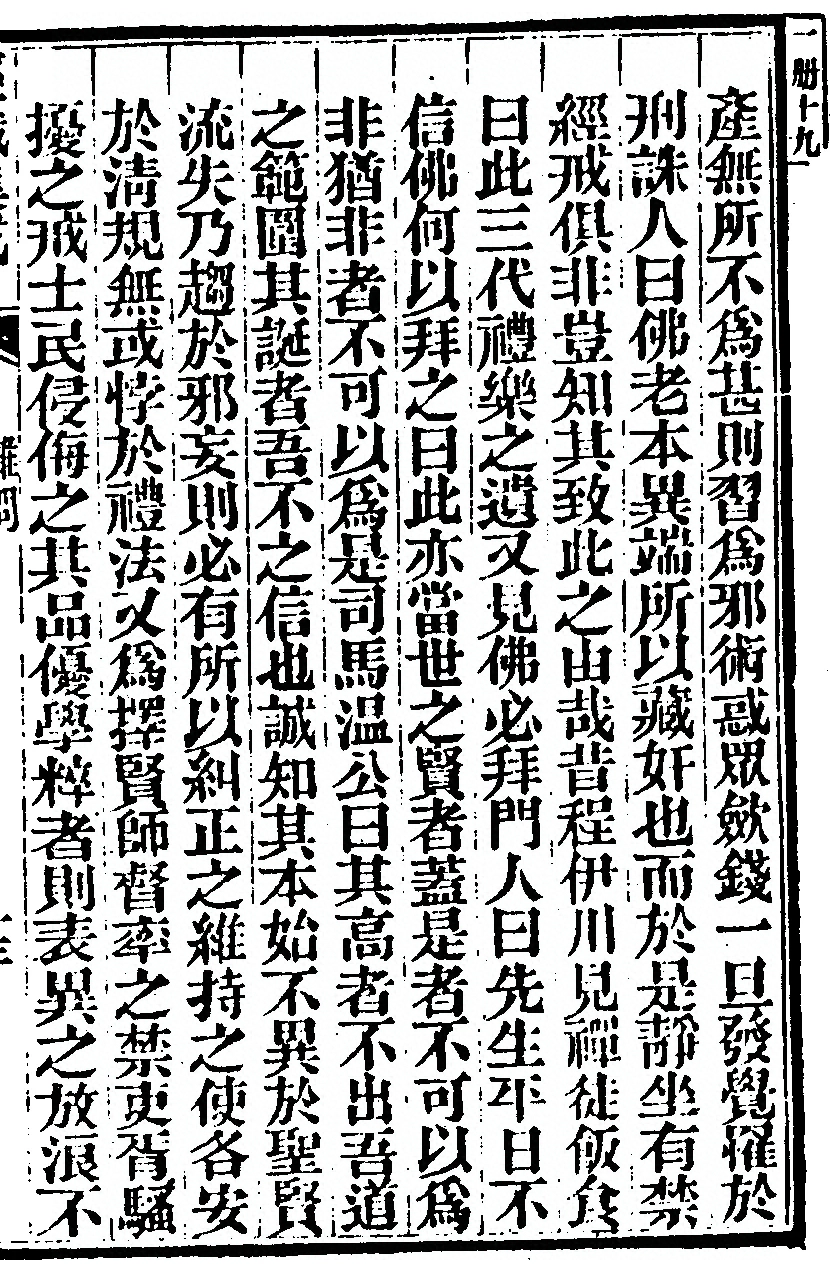 一册十九
產無所不爲甚則習爲邪術惑眾歛錢一旦發覺懼於
刑誅人曰佛老本異端所以藏奸也而於是靜坐有禁
經戒俱非豈知其致此之由哉昔程伊川見禪徒飯食
曰此三代禮樂之遺又見佛必拜門人曰先生平日不
信佛何以拜之曰此亦當世之賢者蓋是者不可以爲
非猶非者不可以爲是司馬温公曰其高者不出吾道
之範圍其誕者吾不之信也誠知其本始不異於聖賢
流失乃趨於邪妄則必有所以糾正之維持之使各安
於清規無或悖於禮法又爲擇賢師督率之禁吏胥騷
擾之戒士民侵侮之其品優學粹者則表異之放浪不